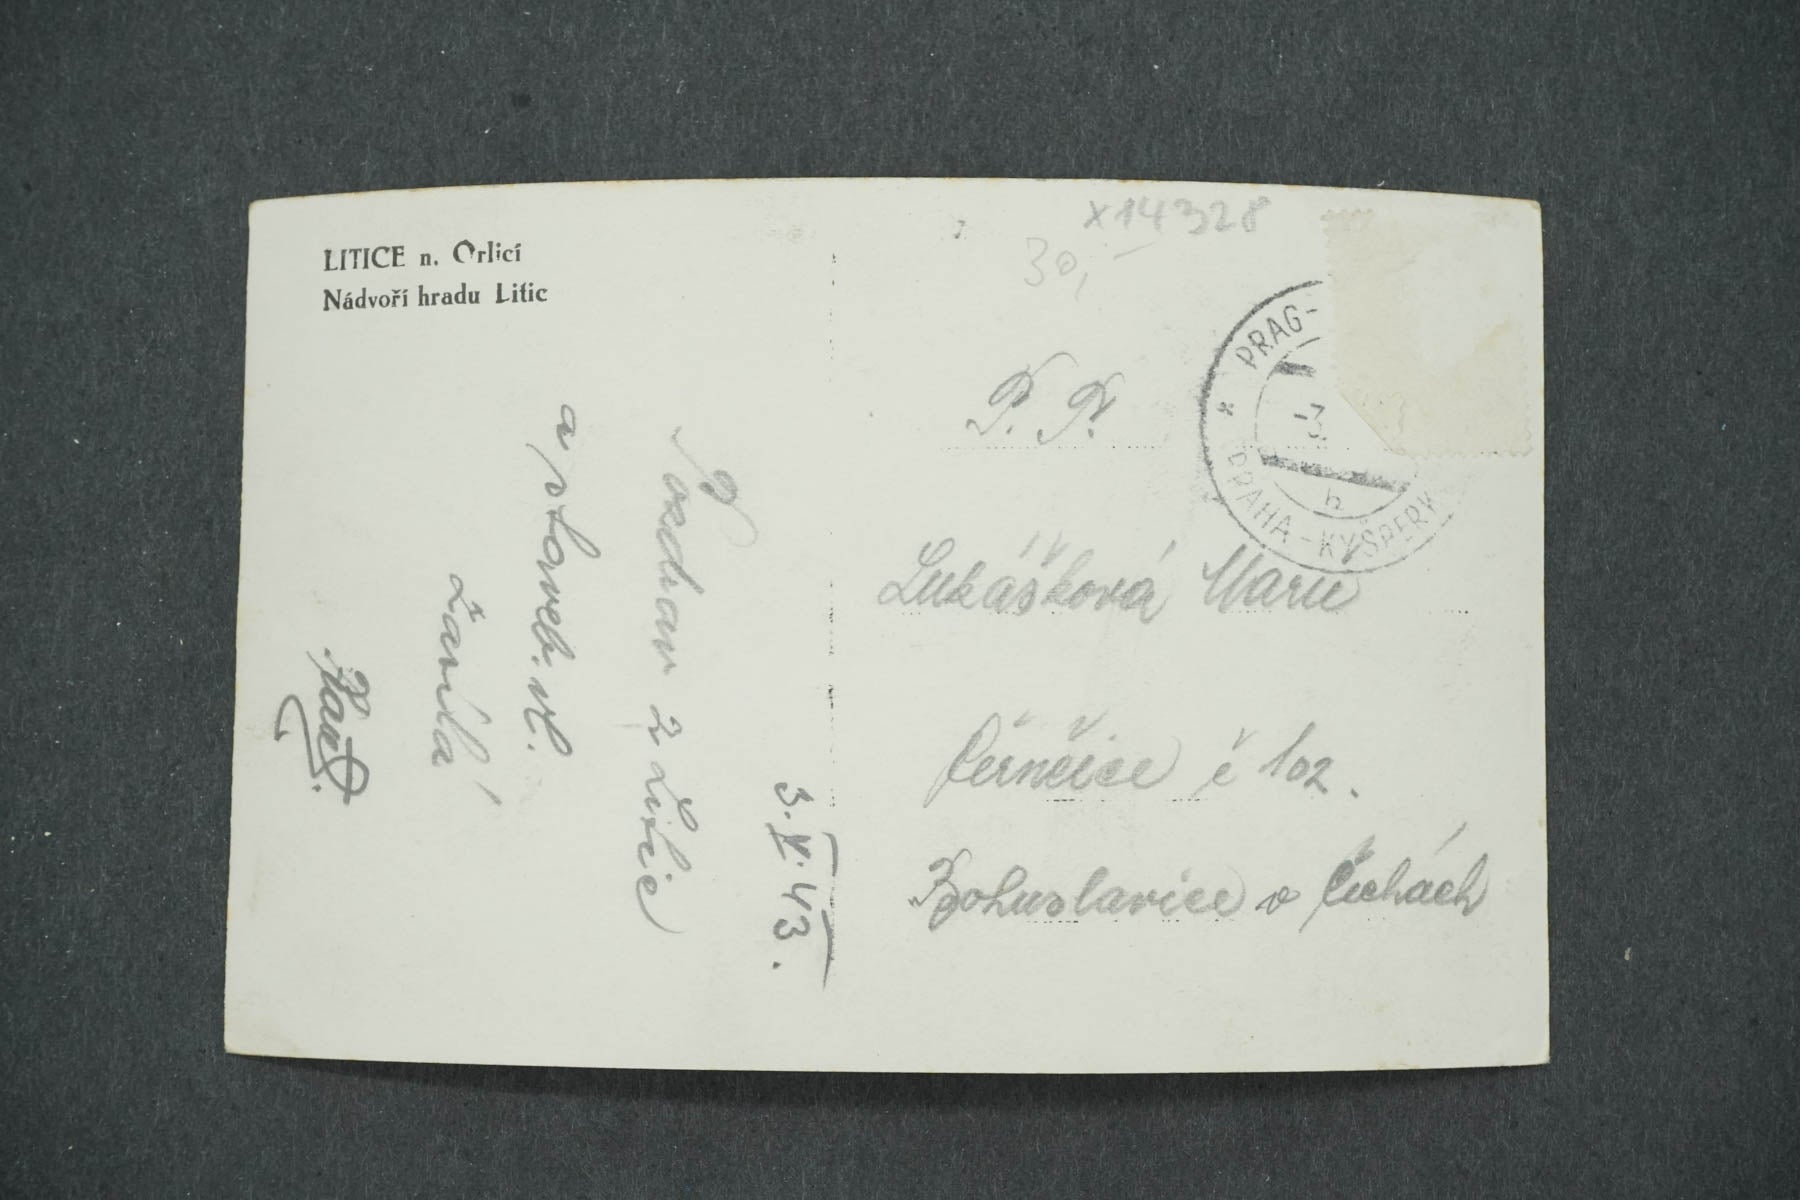 LITICE n. Orlicí
Nádvoří hradu Litic
x14328
30,-
PRAG-
PRAHA-KYŠPERK
-3
b
P. P.
Lukášková Marie
Černčice č 102.
Bohuslavice v Čechách
3. V. 43.
Pozdrav z Litic